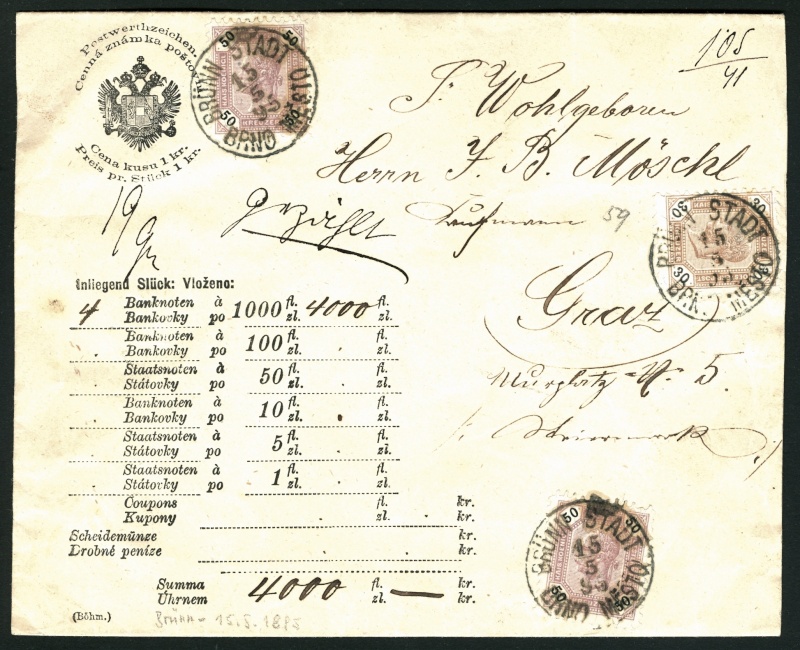 Postwerthzeichen.
Cenná známka poštov
Cena kusu 1 kr.
Preis pr. Stück 1 kr.
50 50
KREUZER
50 50
BRÜNN STADT
15
5
95
BRNO MĚSTO
105
41
T. Wohlgeboren
Herrn J. B. Möschl
Kaufmann
59
30 30
30 30
BRÜNN STADT
15
5
95
BRNO MĚSTO
Graz
Murplatz No 5.
Steiermark
19
gezählt
Inliegend Stück: Vloženo:
4 Banknoten à 1000 fl. 4000 fl.
Bankovky po zl. zl.
Banknoten à 100 fl. fl.
Bankovky po zl. zl.
Staatsnoten à 50 fl. fl.
Státovky po zl. zl.
Banknoten à 10 fl. fl.
Bankovky po zl. zl.
Staatsnoten à 5 fl. fl.
Státovky po zl. zl.
Staatsnoten à 1 fl. fl.
Státovky po zl. zl.
Coupons fl. kr.
Kupony zl. kr.
Scheidemünze kr.
Drobné peníze kr.
Summa 4000 fl. — kr.
Úhrnem zl. kr.
(Böhm.)
Brünn - 15.5.1895
50 50
50 50
BRÜNN STADT
15
5
95
BRNO MĚSTO